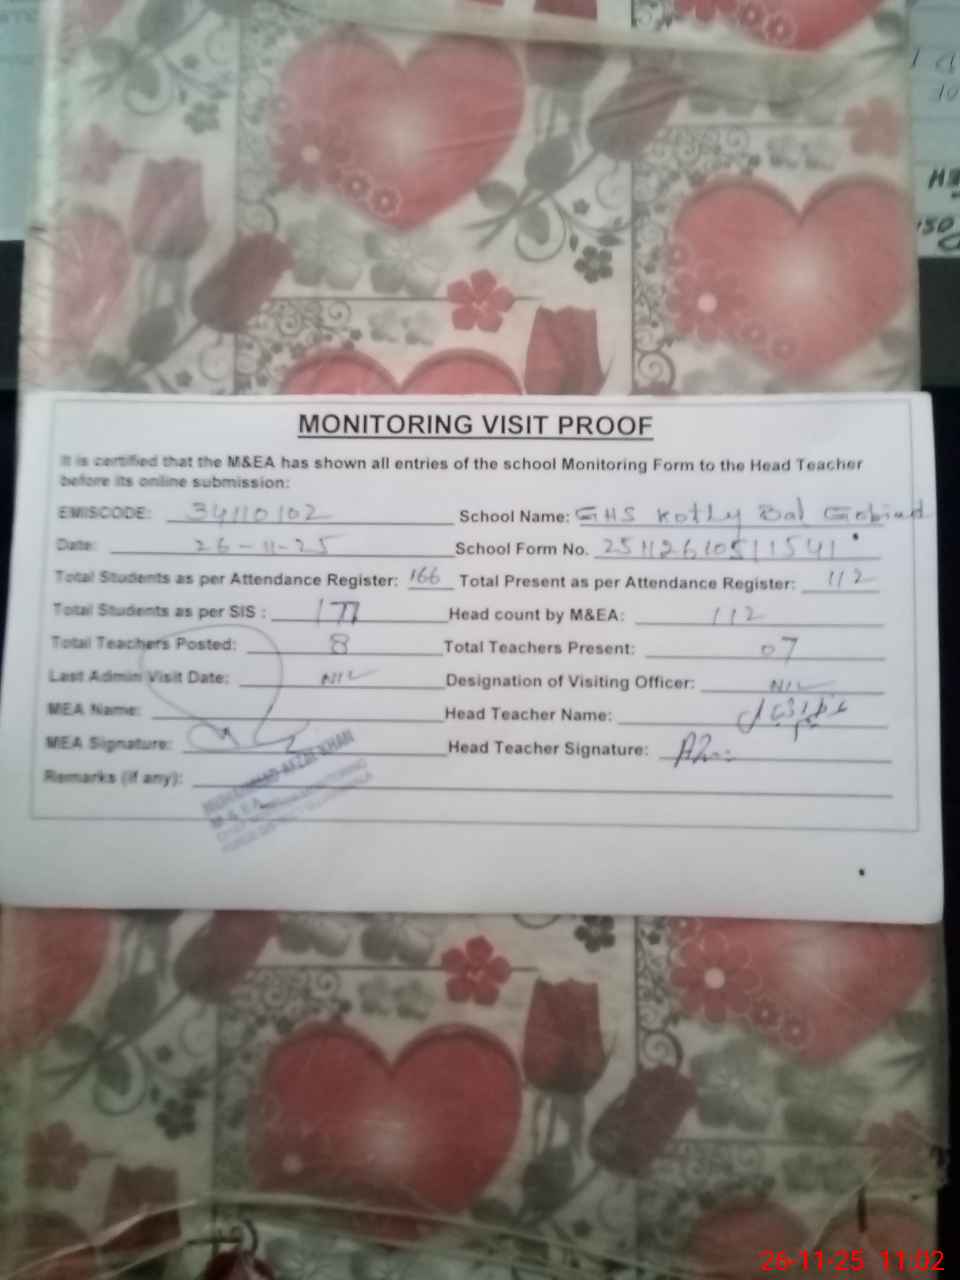 MONITORING VISIT PROOF
It is certified that the M&EA has shown all entries of the school Monitoring Form to the Head Teacher
before its online submission:
EMISCODE: 34110102 School Name: GHS Kotly Bal Gobind
Date: 26-11-25 School Form No. 25112610511541
Total Students as per Attendance Register: 166 Total Present as per Attendance Register: 112
Total Students as per SIS : 177 Head count by M&EA: 112
Total Teachers Posted: 8 Total Teachers Present: 07
Last Admin Visit Date: NIL Designation of Visiting Officer: NIL
MEA Name: Head Teacher Name:
MEA Signature: Head Teacher Signature:
Remarks (if any):
MUHAMMAD AFZAL KHAN
M.E.A.
26-11-25 11:02